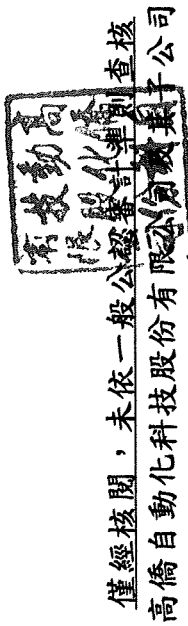 僅經核閱，未依一般公認審計準則查核
高僑自動化科技股份有限公司及其子公司